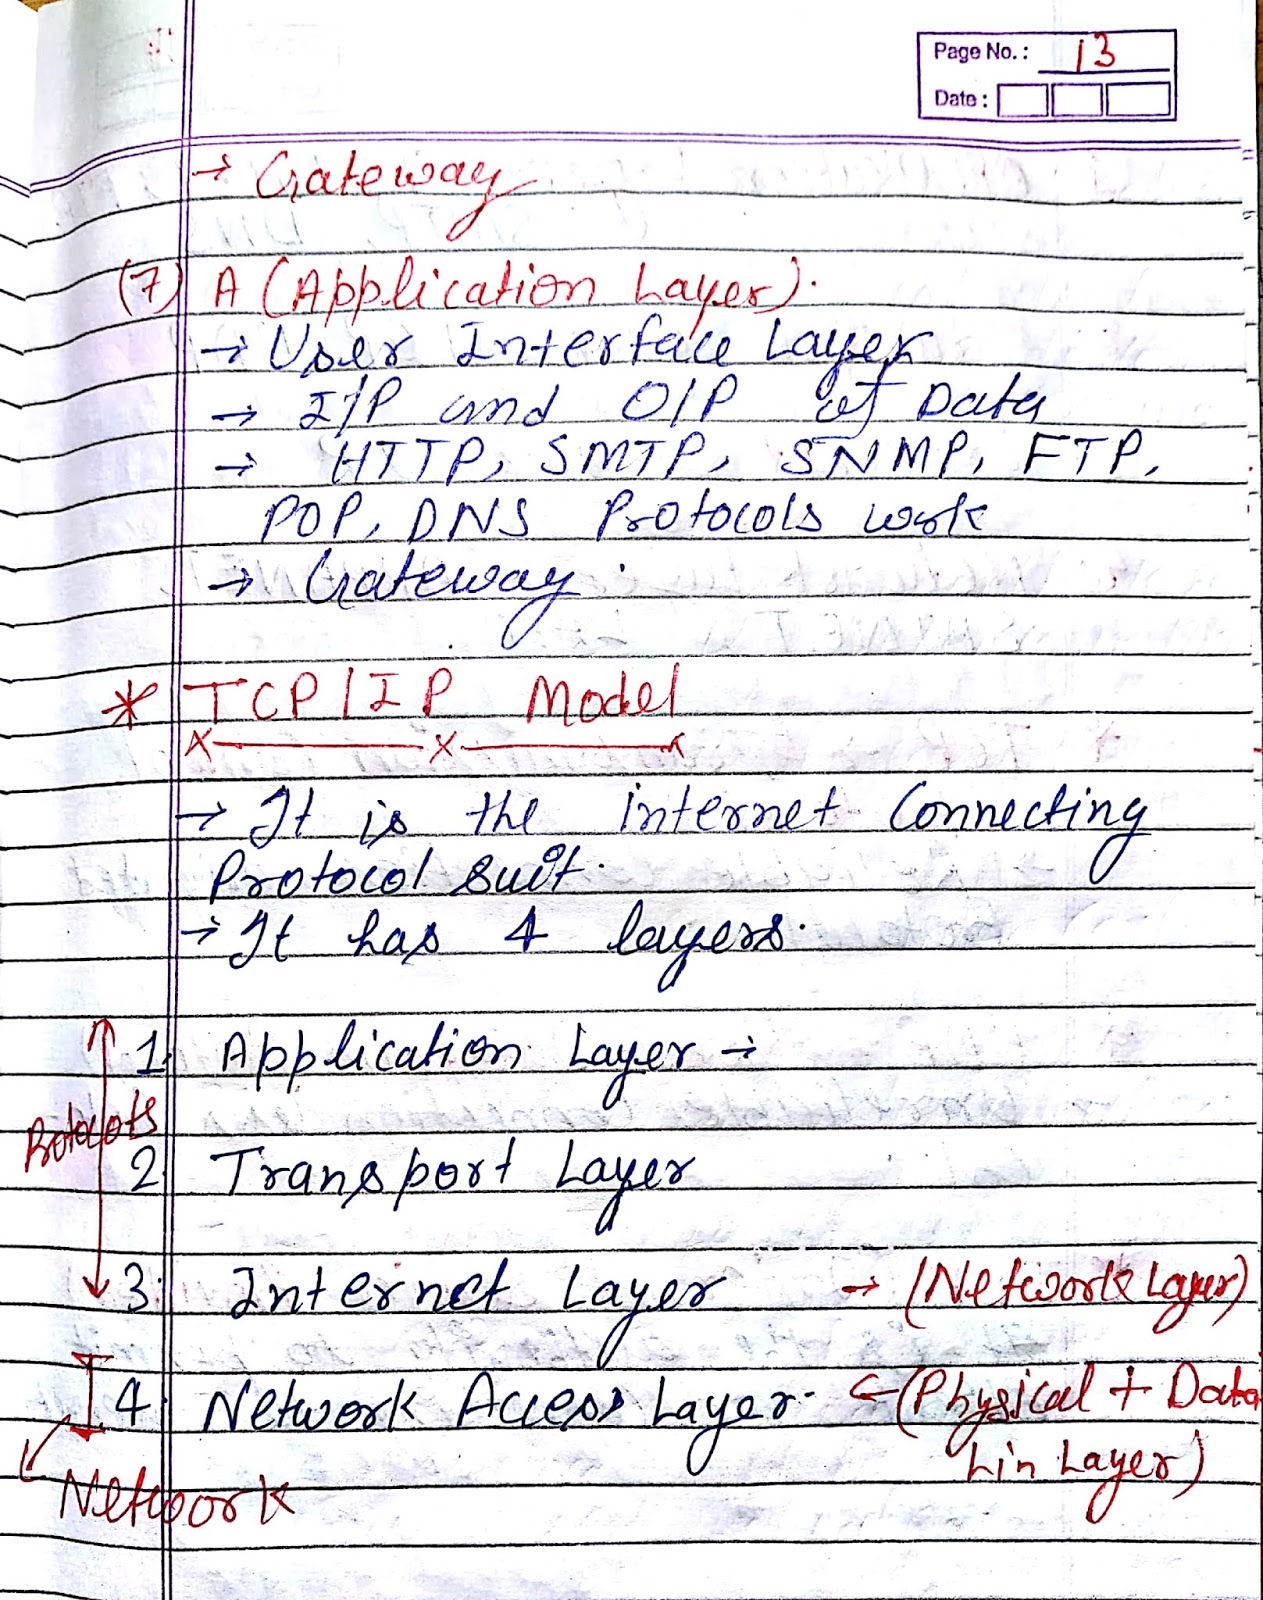 Page No.: 13
Date:
→ Gateway
(7) A (Application Layer).
→ User Interface Layer
→ I/P and O/P of Data
→ HTTP, SMTP, SNMP, FTP,
POP, DNS Protocols work
→ Gateway.
* TCP/IP Model
→ It is the internet Connecting
Protocol Suit.
→ It has 4 layers.
1. Application Layer →
Protocols
2. Transport Layer
3. Internet Layer → (Network Layer)
4. Network Access Layer. ← (Physical + Data
Lin Layer)
Network